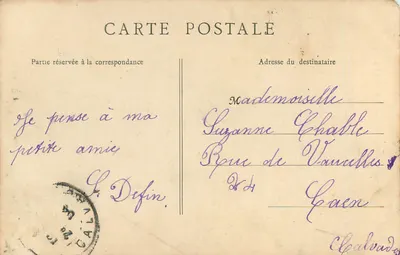 CARTE POSTALE
Partie réservée à la correspondance
Adresse du destinataire
Je pense à ma
petite amie
S. Defin.
Mademoiselle
Suzanne Chable
Rue de Vaucelles
24
Caen
Calvados
CALVA